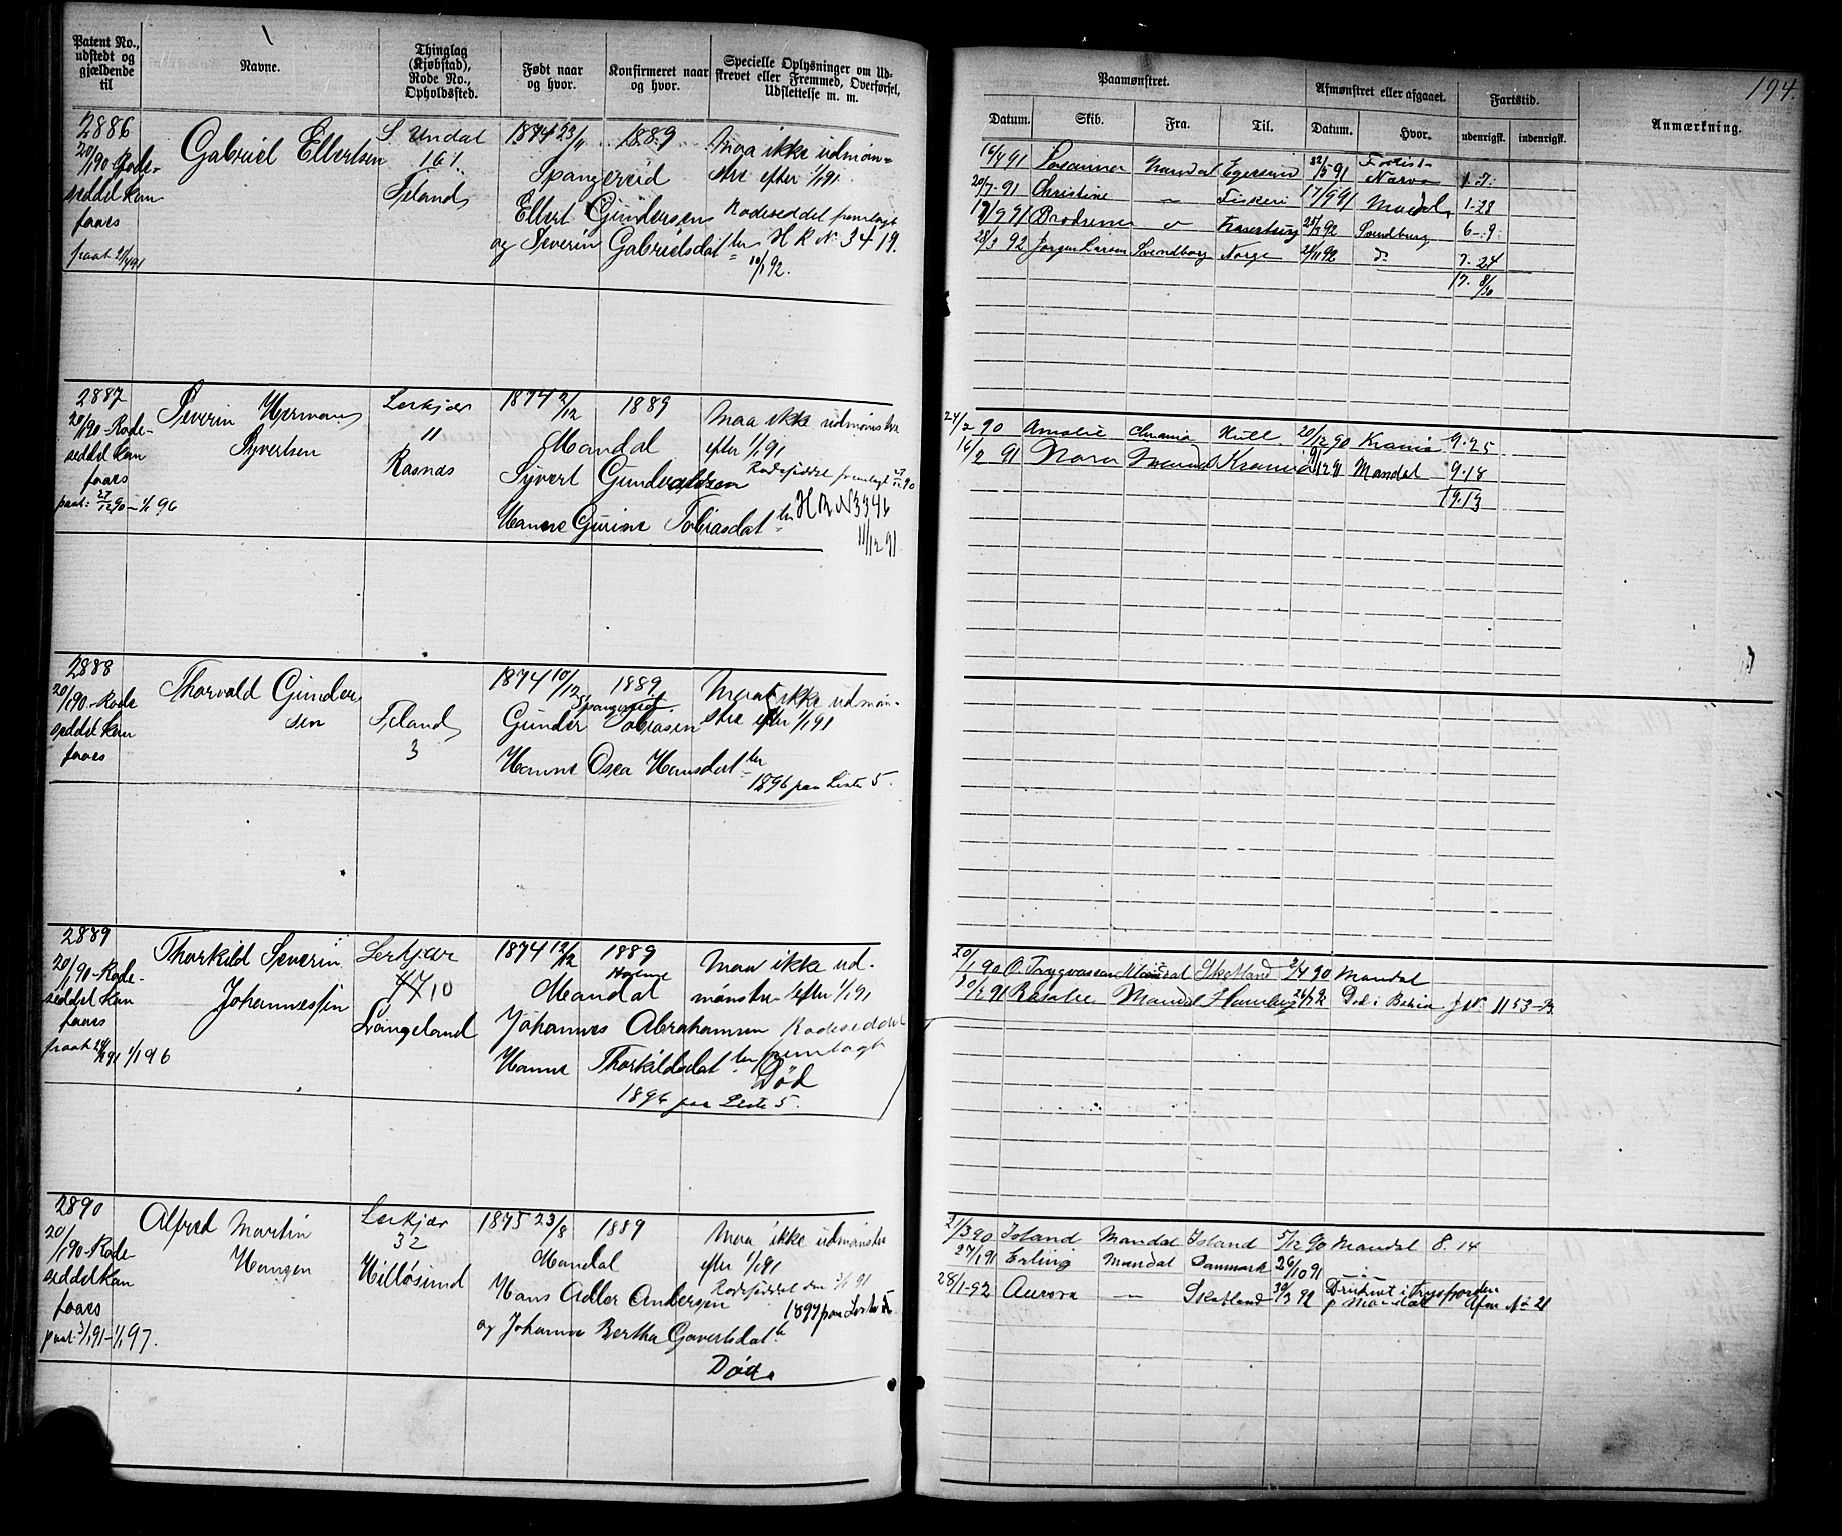 194.
Patent No., udstedt og gjældende til
Navne.
Thinglag (Kjøbstad), Rode No., Opholdssted.
Født naar og hvor.
Konfirmeret naar og hvor.
Specielle Oplysninger om Udskrevet eller Fremmed, Overførsel, Udslettelse m. m.
Paamønstret.
Afmønstret eller afgaaet.
Fartstid.
Anmærkning.
Datum. Skib. Fra. Til. Datum. Hvor. udenrigsk. indenrigsk.
2886 Gabriel Elbertsen S. Undal 1874 23/11 1889 Maa ikke udmøn=
20/1 90 Rode- 161 Spangereid stre efter 1/1 91
seddel kan Ellert Gundersen Rodeseddel fremlagt
faaes og Severin Gabrielsdatter H R No 3419.
10/1 92.
16/4 91 Susanna Mandal Egersund
20/7 - 91 Christine " Fiskeri 17/9 91 Mandal 1-28
17/9 91 Brødrene 6-9
28/3 92 Jørgen Larsen Svendborg Norge 92 do 7-24
17. 8/30
2887 Severin Herman Lerkjær 1874 2/12 1889 Maa ikke udmønstre
20/1 90 - Rode- Syvertsen 11 Mandal efter 1/1 91
seddel kan Rasnæs Syvert Gundvaldsen
faaes Hanne Gurine Tobiasdatter H R N 3346
paat: 27/12 90 - 1/1 96 11/12 91
24/2 90 Amalie Hull 20/12 90 Krania 9-25
16/2 91 Nora Krania Mandal 9-18
19.13
2888 Thorvald Gunder 1874 10/12 1889 Maa ikke udmøn-
20/1 90 - Rode sen Spangereid stre efter 1/1 91
seddel kan 3 Gunder Tobiasen
faaes Hanne Osea Hansdatter
1896 paa Liste 5.
2889 Thorkild Severin Lerkjær 1874 12/12 1889 Maa ikke ud-
20/1 90 - Rode- Johannessen 10 Mandal mønstre efter 1/1 91
seddel kan Langeland Johannes Abrahamsen Rodeseddel
faaes Hanne Thorkildsdatter fremlagt
1/1 96 Død
1896 paa Liste 5.
20/1 90 O. Trygvason Mandal Skotland 2/4 90 Mandal
91 Rosalie Mandal Død i Bahia J No. 1153-92
2890 Alfred Martin Lerkjær 1875 23/8 1889 Maa ikke udmønstre
20/1 90 - Rode- Hansen 32 Mandal efter 1/1 91
seddel kan Hillesund Hans Adler Andersen
faaes og Johanne Bertha Govertsdatter 1897 paa Liste 5
paat. 3/1 91 - 1/1 97. Død.
21/3 90 Island Mandal Island 5/12 90 Mandal 8. 14
27/1 91 Erling Mandal Danmark 26/10 91 "
28/1 - 92 Aurora — Skotland 30/3 92 Druknet i Trysfjorden
p Mandal Afm No 21